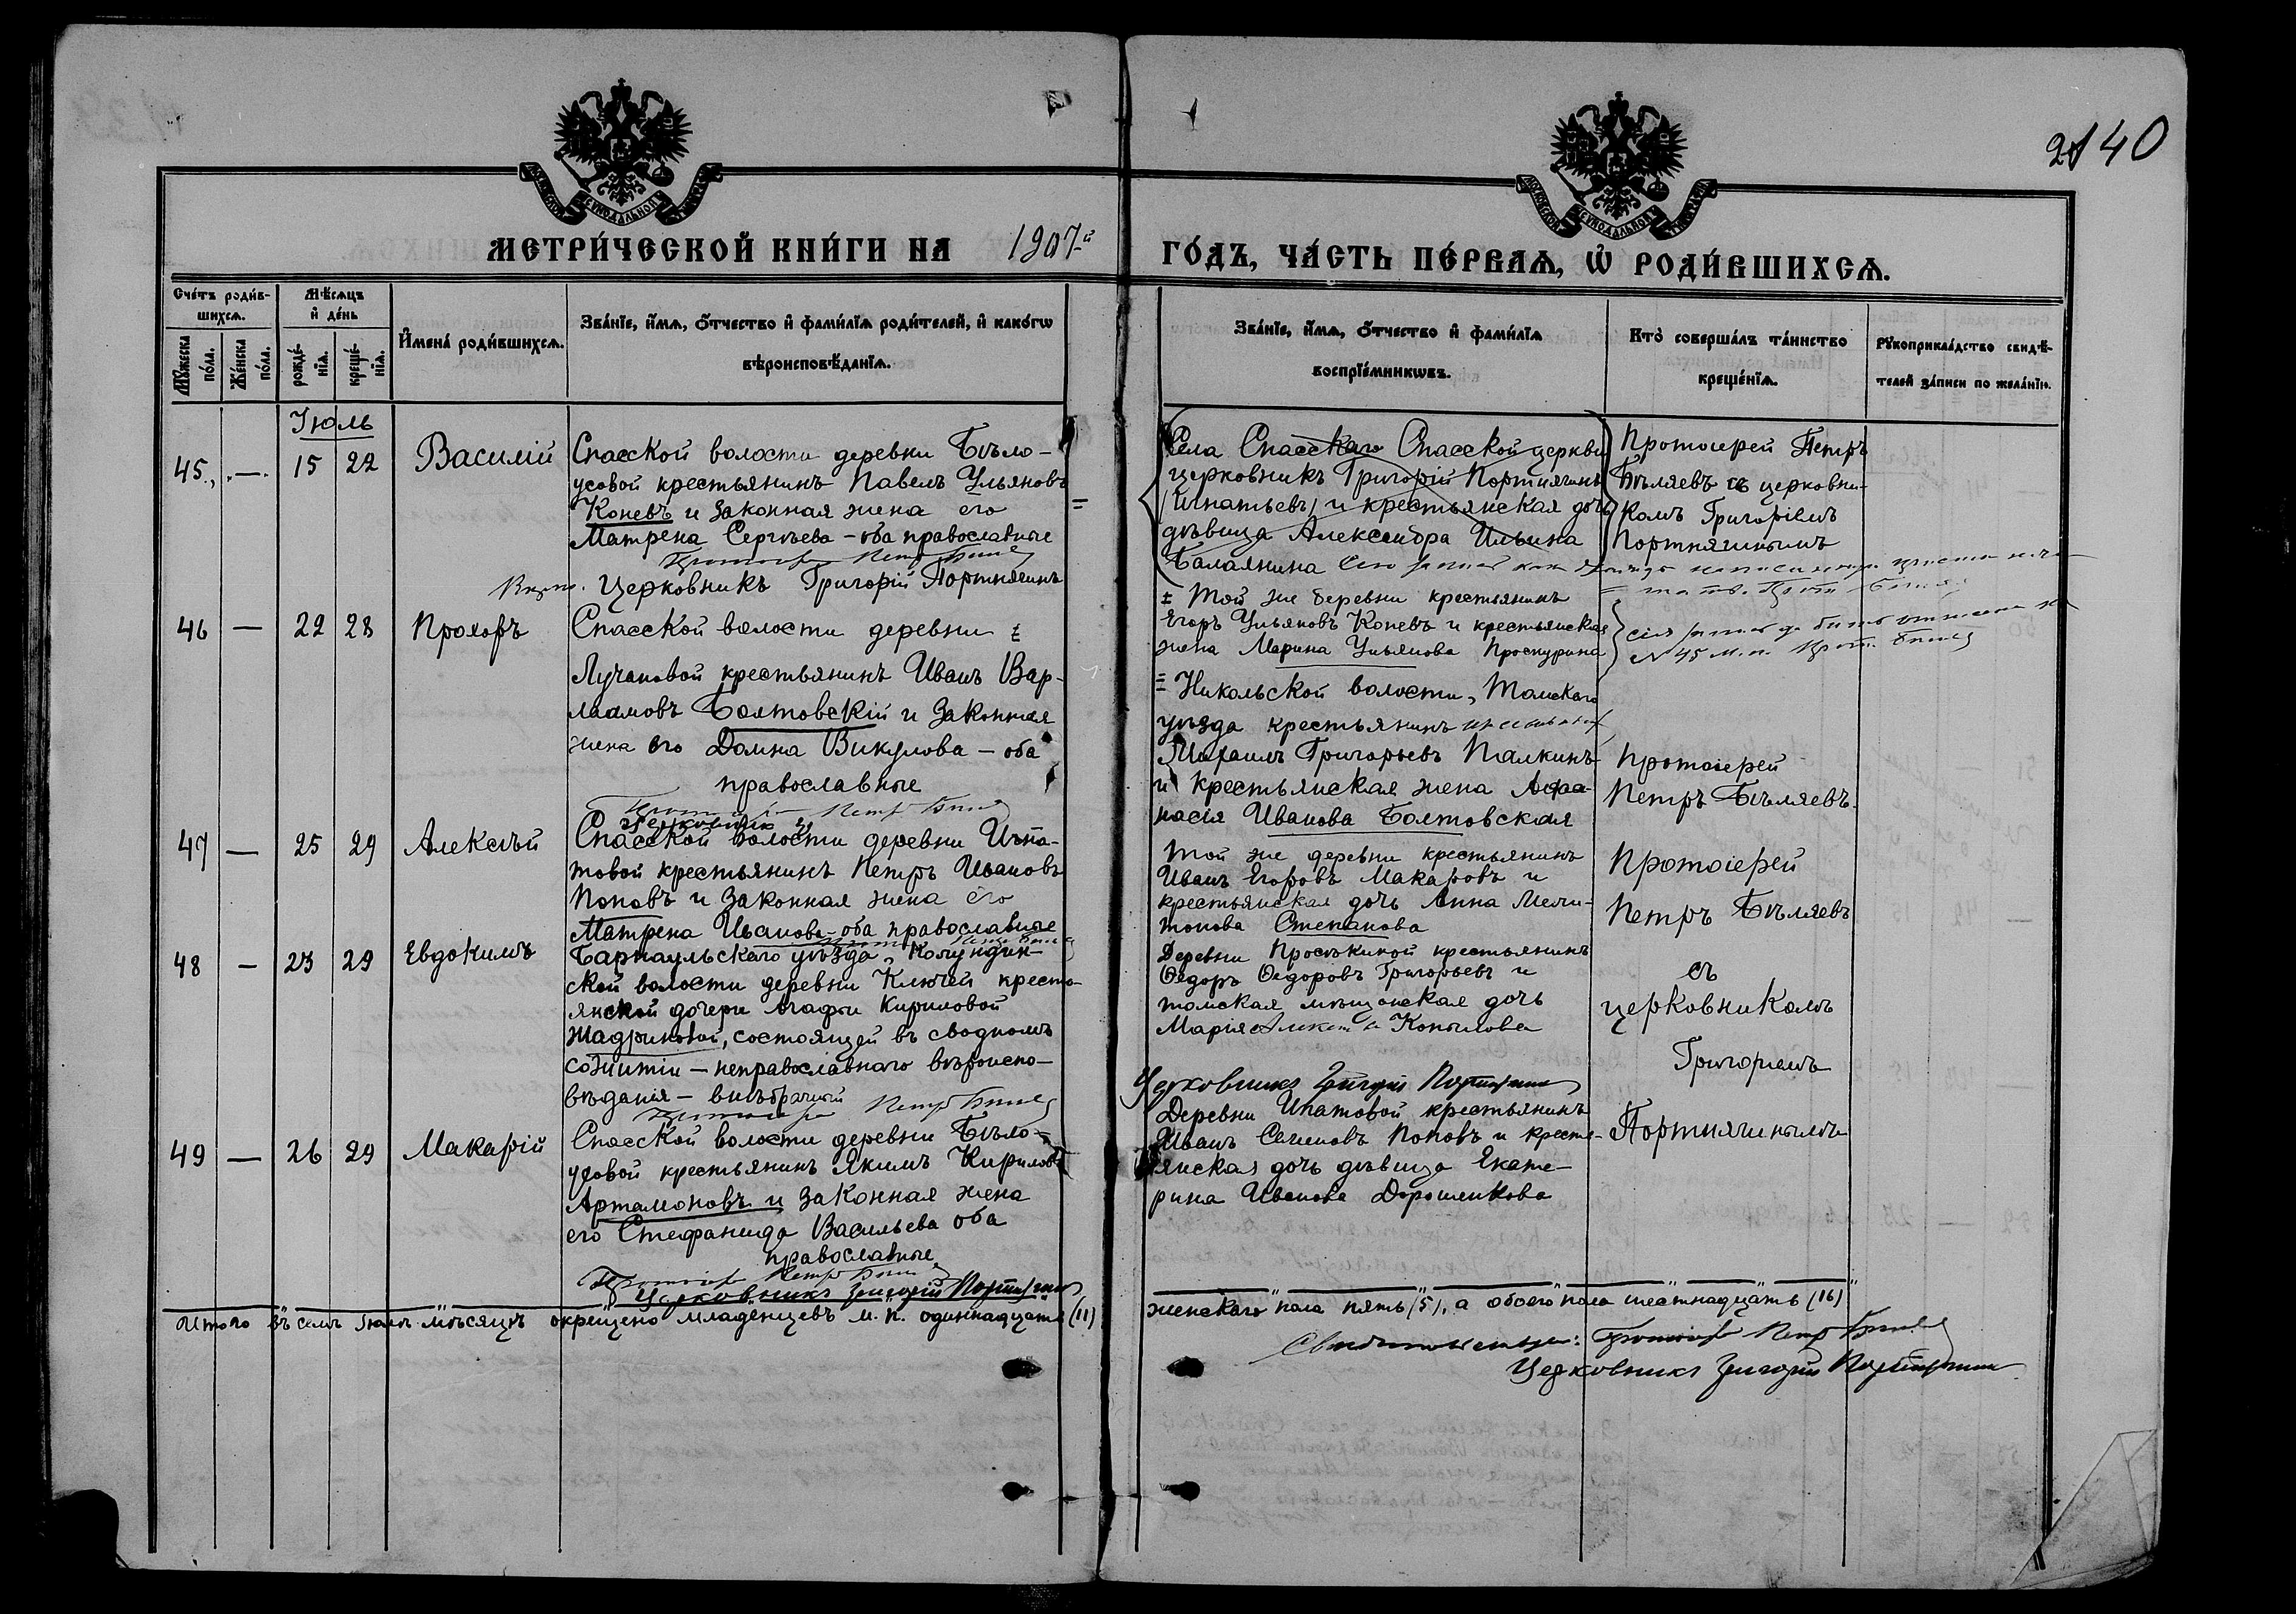 2140
МЕТРИ́ЧЕСКОЙ КНИ́ГИ НА 1907-й ГО́ДЪ, ЧА́СТЬ ПЕ́РВАѦ, Ѡ҆ РОДИ́ВШИХСѦ.
Сче́тъ роди́в-
шихсѧ.
Мꙋ́жеска по́ла.
Же́нска по́ла.
Мѣ́сѧцъ
и҆ де́нь
рожде́-
нїѧ.
креще́-
нїѧ.
И҆мена̀ роди́вшихсѧ.
Зва́нїе, и҆́мѧ, ѻ҆́тчество и҆ фами́лїѧ роди́телей, и҆ како́гѡ
вѣроисповѣ́данїѧ.
Зва́нїе, и҆́мѧ, ѻ҆́тчество и҆ фами́лїѧ
воспрїе́мникѡвъ.
Кто̀ соверша́лъ та́инство
креще́нїѧ.
Рꙋкоприкла́дство свидѣ́-
телей за́писи по жела́нїю.
Іюль
45. — 15 22 Василій
Спасской волости деревни Бѣло-
усовой крестьянинъ Павелъ Ульяновъ
Коневъ и законная жена его
Матрена Сергѣева – оба православные
Церковникъ Григорій Портнягинъ
Села Спасскаго Спасской церкви
церковникъ Григорій Портнягинъ
(Игнатьевъ) и крестьянская дочь
дѣвица Александра Ильина
Балаянина
= Той же деревни крестьянинъ
Егоръ Ульяновъ Коневъ и крестьянская
жена Марина Ульянова Проскурина
Протоіерей Петръ
Бѣляевъ съ церковни-
комъ Григоріемъ
Портнягинымъ
46 — 22 28 Прохоръ
Спасской волости деревни
Лучановой крестьянинъ Иванъ Вар-
лаамовъ Болтовскій и законная
жена его Домна Викулова – оба
православные
Никольской волости, Томскаго
уѣзда крестьянинъ
Михаилъ Григорьевъ Палкинъ
и крестьянская жена Афа-
насія Иванова Болтовская
Протоіерей
Петръ Бѣляевъ.
47 — 25 29 Алексѣй
Спасской волости деревни Ипа-
товой крестьянинъ Петръ Ивановъ
Поповъ и законная жена его
Матрена Иванова – оба православные
Той же деревни крестьянинъ
Иванъ Егоровъ Макаровъ и
крестьянская дочь Анна Мели-
тонова Степанова
Протоіерей
Петръ Бѣляевъ
48 — 23 29 Евдокимъ
Барнаульскаго уѣзда,
ской волости деревни Ключей кресть-
янской дочери Агафіи Кириловой
Жадриновой, состоящей въ сводномъ
сожитіи – неправославнаго вѣроиспо-
вѣданія – внѣбрачный
Деревни Просѣкиной крестьянинъ
Ѳедоръ Ѳедоровъ Григорьевъ и
томская мѣщанская дочь
Марія Копылова
Церковникъ Григорій Портнягинъ
съ
церковникомъ
Григоріемъ
Портнягинымъ
49 — 26 29 Макарій
Спасской волости деревни Бѣло-
усовой крестьянинъ Якимъ Кириловъ
Артамоновъ и законная жена
его Стефанида Васильева оба
православные
Протоіерей Петръ Бѣляевъ
Церковникъ Григорій Портнягинъ
Деревни Ипатовой крестьянинъ
Иванъ Семеновъ Поповъ и кресть-
янская дочь дѣвица Екате-
рина Иванова Дорошенкова
Итого въ семъ Іюлѣ мѣсяцѣ окрещено младенцевъ м. п. одиннадцать (11) женскаго пола пять (5), а обоего пола шестнадцать (16)
Свидѣтельствуемъ: Протоіерей Петръ Бѣляевъ
Церковникъ Григорій Портнягинъ